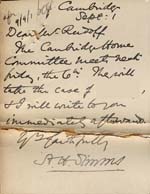 Cambridge
Sept: 1
Dear Mr Rudolf
The Cambridge Home
Committee meets next
Friday, the 6th. The will
take the case of
& I will write to you
immediately afterwards.
Yrs faithfully
A H Simms